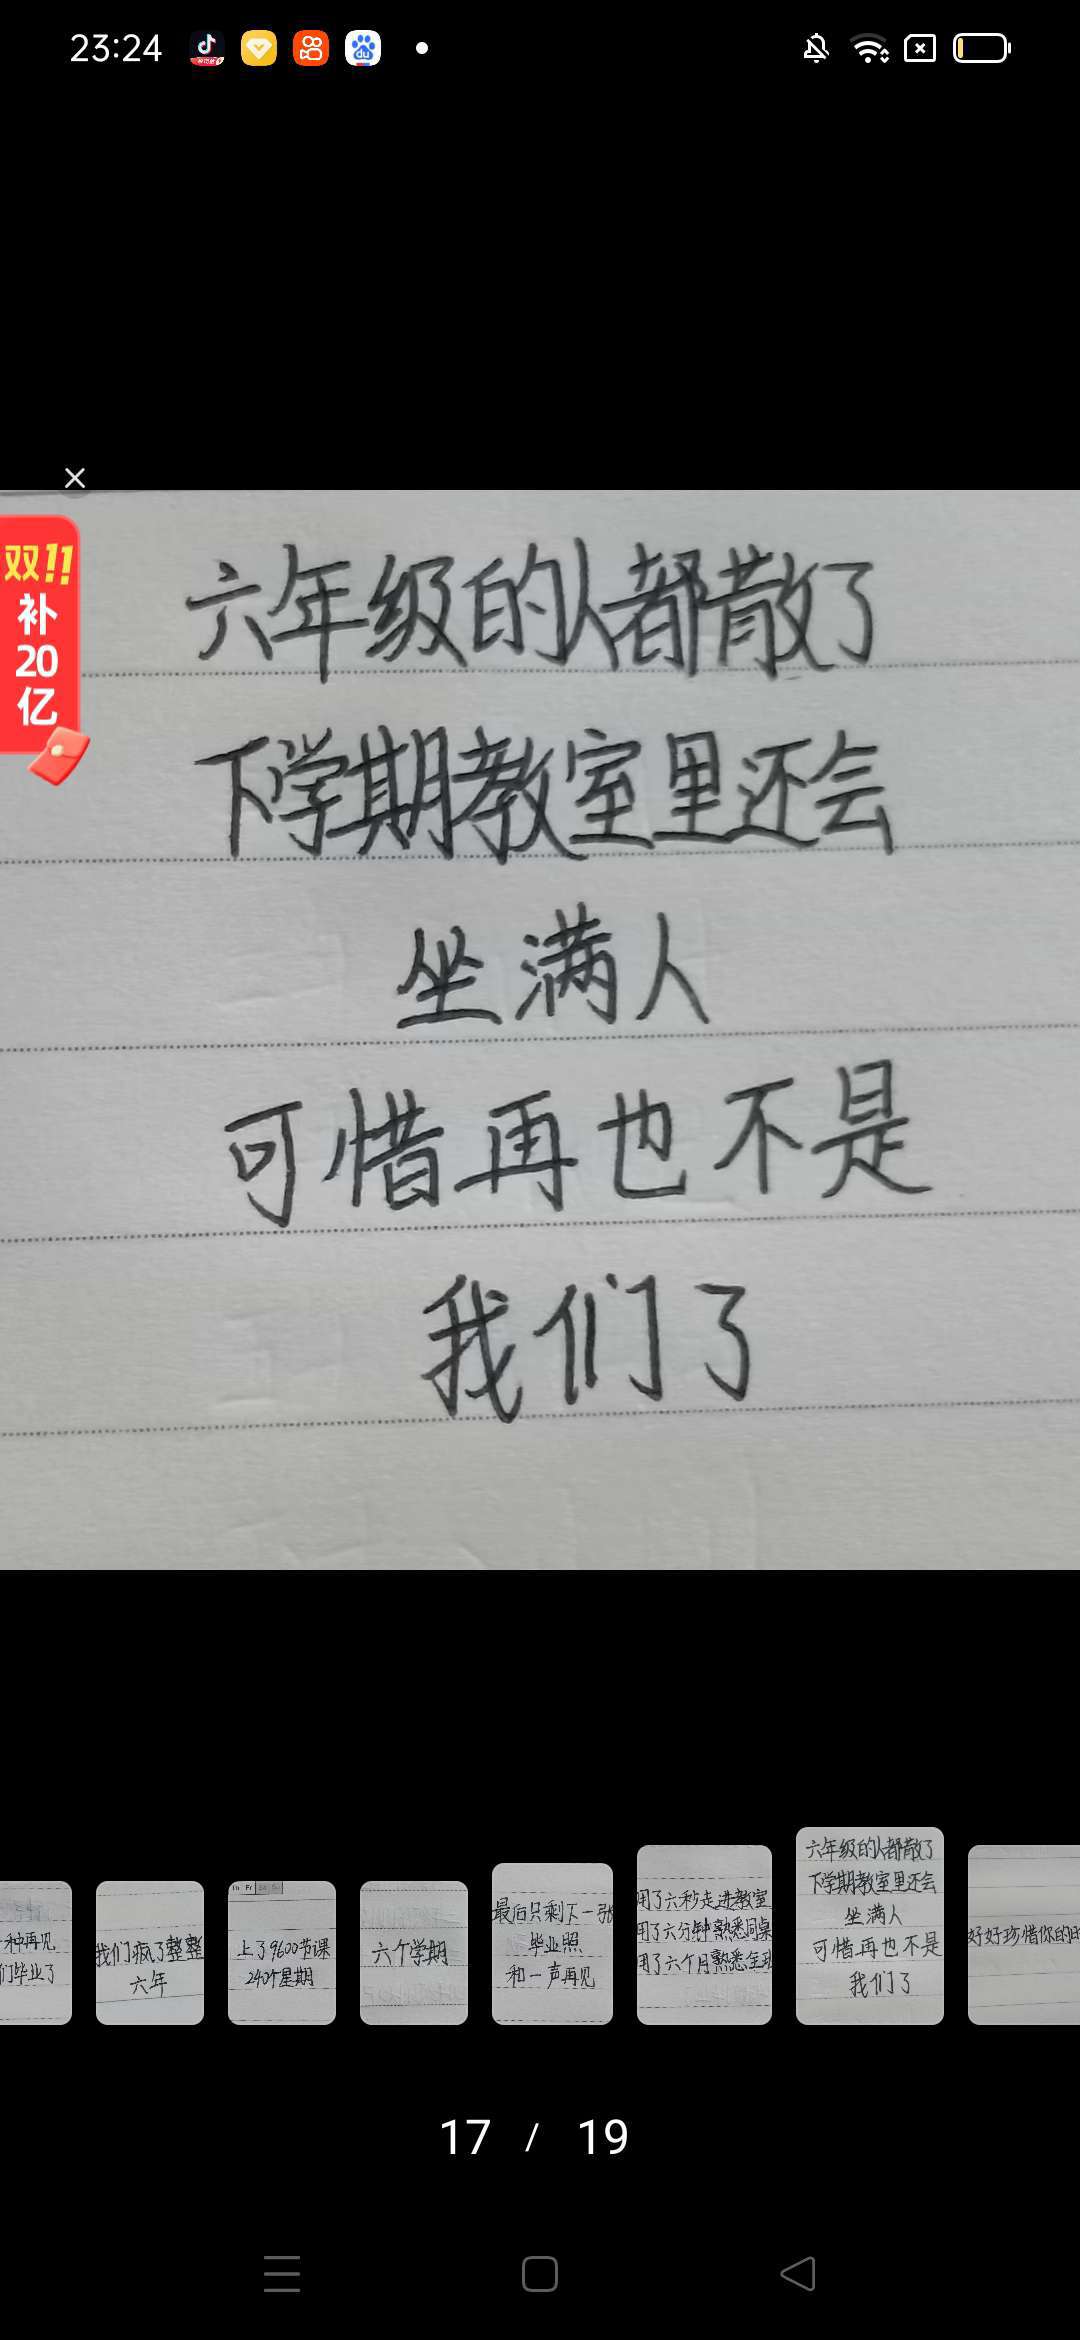 23:24
双11
补
20
亿
六年级的人都散了
下学期教室里还会
坐满人
可惜再也不是
我们了
种再见
们毕业了
我们疯了整整
六年
上了9600节课
240个星期
六个学期
最后只剩下一张
毕业照
和一声再见
用了六秒走进教室
用了六分钟熟悉同桌
用了六个月熟悉全班
六年级的人都散了
下学期教室里还会
坐满人
可惜再也不是
我们了
好好珍惜你的时
17 / 19